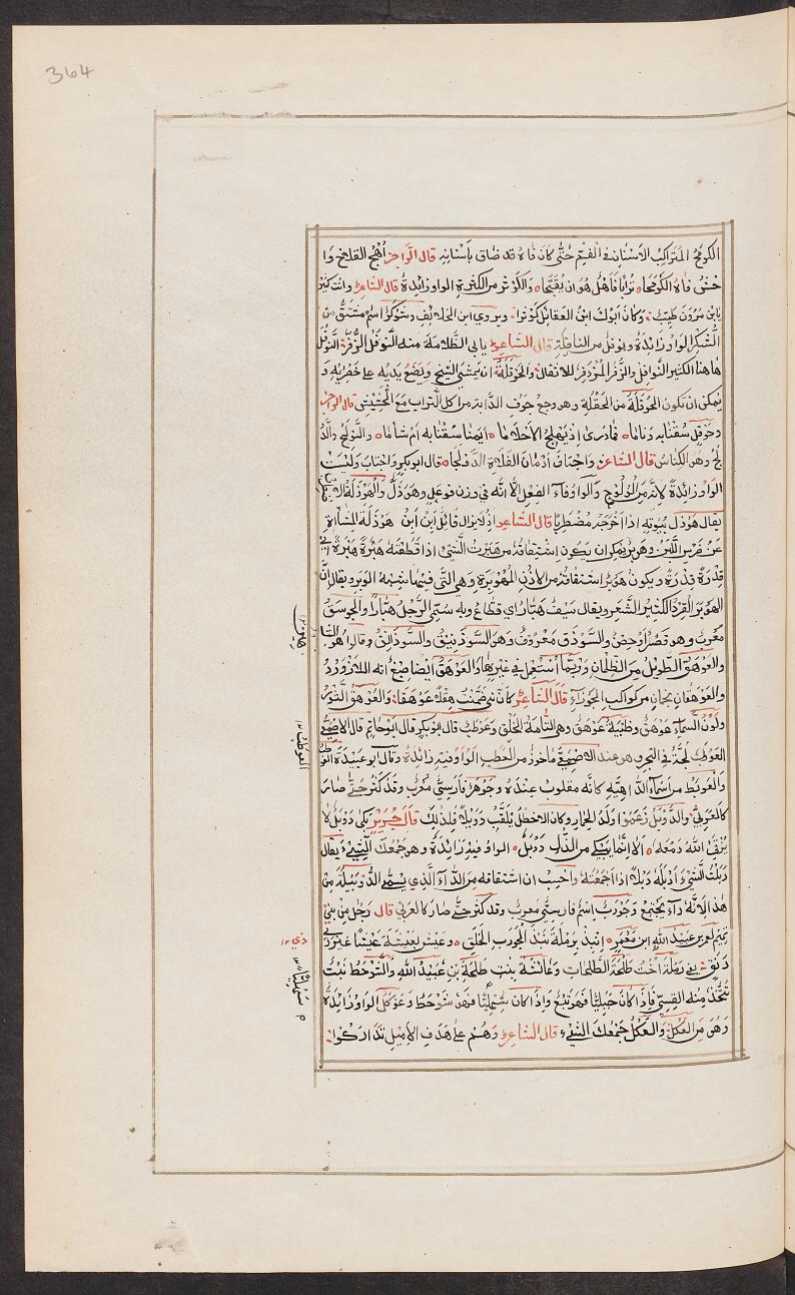 364
الكومح المتراكب الاسنان في الفم حتى كان فاه قد ضاق بأسنانه قال الراجز أهج القلاخ وا
حش فاه الكومحا تربا فاهل هو ان يقبحا والكوثر من الكثرة الواو زائدة قال الشاعر وانت كثير
يابن مروان طيب وكان أبوك ابن العقايل كوثرا ويروي ابن الخلايف وشوكر اسم مشتق من
الشكر الواو زائدة ونوفل من النافلة قال الشاعر يابى الظلامة منه النوفل الزفر النوفل
هاهنا الكثير النوافل والزفر المزدفر للاثقال والحوقلة ان يمشي الشيخ ويضع يديه على خصريه و
يمكن ان تكون الحوقلة من الحقلة وهو وجع جوف الدابة من اكل التراب مع الحشيش قال الراجز
وحوقل سقنا به وناما فما درى اذ يهلج الأحلاما ايمنا سقنا به أم شاما والتولج والد
لج وهو الكناس قال الشاعر واجتاف أدمان الفلاة الدولجا قال ابو بكر واجتاب وليست
الواو زائدة لانه من الولوج والواو فاء الفعل الا انه في وزن فوعل وهوذل والهوذلة
يقال هوذل ببوله اذا اخرجه مضطربا قال الشاعر اذ لا يزال قائل أبن أبن هوذلة المشآة
عن ضرس اللبن وهوبر يمكن ان يكون اشتقاقه من هبرت الشيء اذا قطعته هبرة هبرة اي
قدرة قدرة ويكون هوبر اشتقاقه من الاذن المهوبرة وهي التي فيها شبه الوبر ويقال ان
الهوبر القرد الكثير الشعر ويقال سيف هبار اي قطاع وبه سمي الرجل هبارا والجوسق
معرب وهو قصر او حصن والسوذق معروف وهو السوذنيق والسوذانق وقالوا هو الشا
والعوهق الطويل من الظلمان وربما استعمل في غيرها والعوهق ايضا صبغ انه اللازورد
والعوهقان نجمان من كواكب الجوزاء قال الشاعر كانني ضمنت هقلا عوهقا والعوهق الثور
ولون السماء عوهق وظبية عوهق وهي التامة الخلق وعوطب قال ابو بكر قال ابو حاتم قال الاصمعي
العوطب لجة في البحر وهو عند الاصمعي مأخوذ من العطب الواو فيه زائدة وقال ابو عبيدة العوطب
والعوبط من اسماء الداهية كانه مقلوب عنده وجوهر فارسي معرب وقد كثر حتى صار
كالعربي والدوبل زعموا ولد الحمار وكان الاخطل يلقب دوبلا فلذلك قال جرير بكى دوبل لا
يرقئ الله دمعه الا انما يبكي من الذل دوبل الواو فيه زائدة وهو جمعك الشيء يقال
دبلت الشيء أدبله دبلا اذا جمعته واحسب ان اشتقاقه من الداء الذي يسمى الدبيلة من
هذا لانه داء يجتمع وجورب اسم فارسي معرب وقد كثر حتى صار كالعربي قال رجل من بني
تميم لعمر بن عبيد الله ابن معمر انبذ برملة نبذ الجورب الخلق وعش بعيشة عيشا غير ذي
رنق يعني رملة أخت طلحة الطلحات وعائشة بنت طلحة بن عبيد الله والشوحط نبت
تتخذ منه القسي فاذا كان جبليا فهو نبع واذا كان سهليا فهو شوحط وعوكل الواو زائدة
وهو من العكل والعكل جمعك الشيء قال الشاعر وهنم على هدف الأميل تداركوا
العوطب
ذي